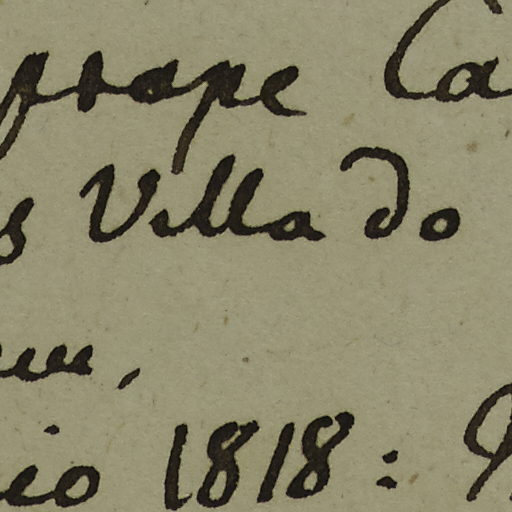 prope Ca
s Villa do
um,
io 1818: